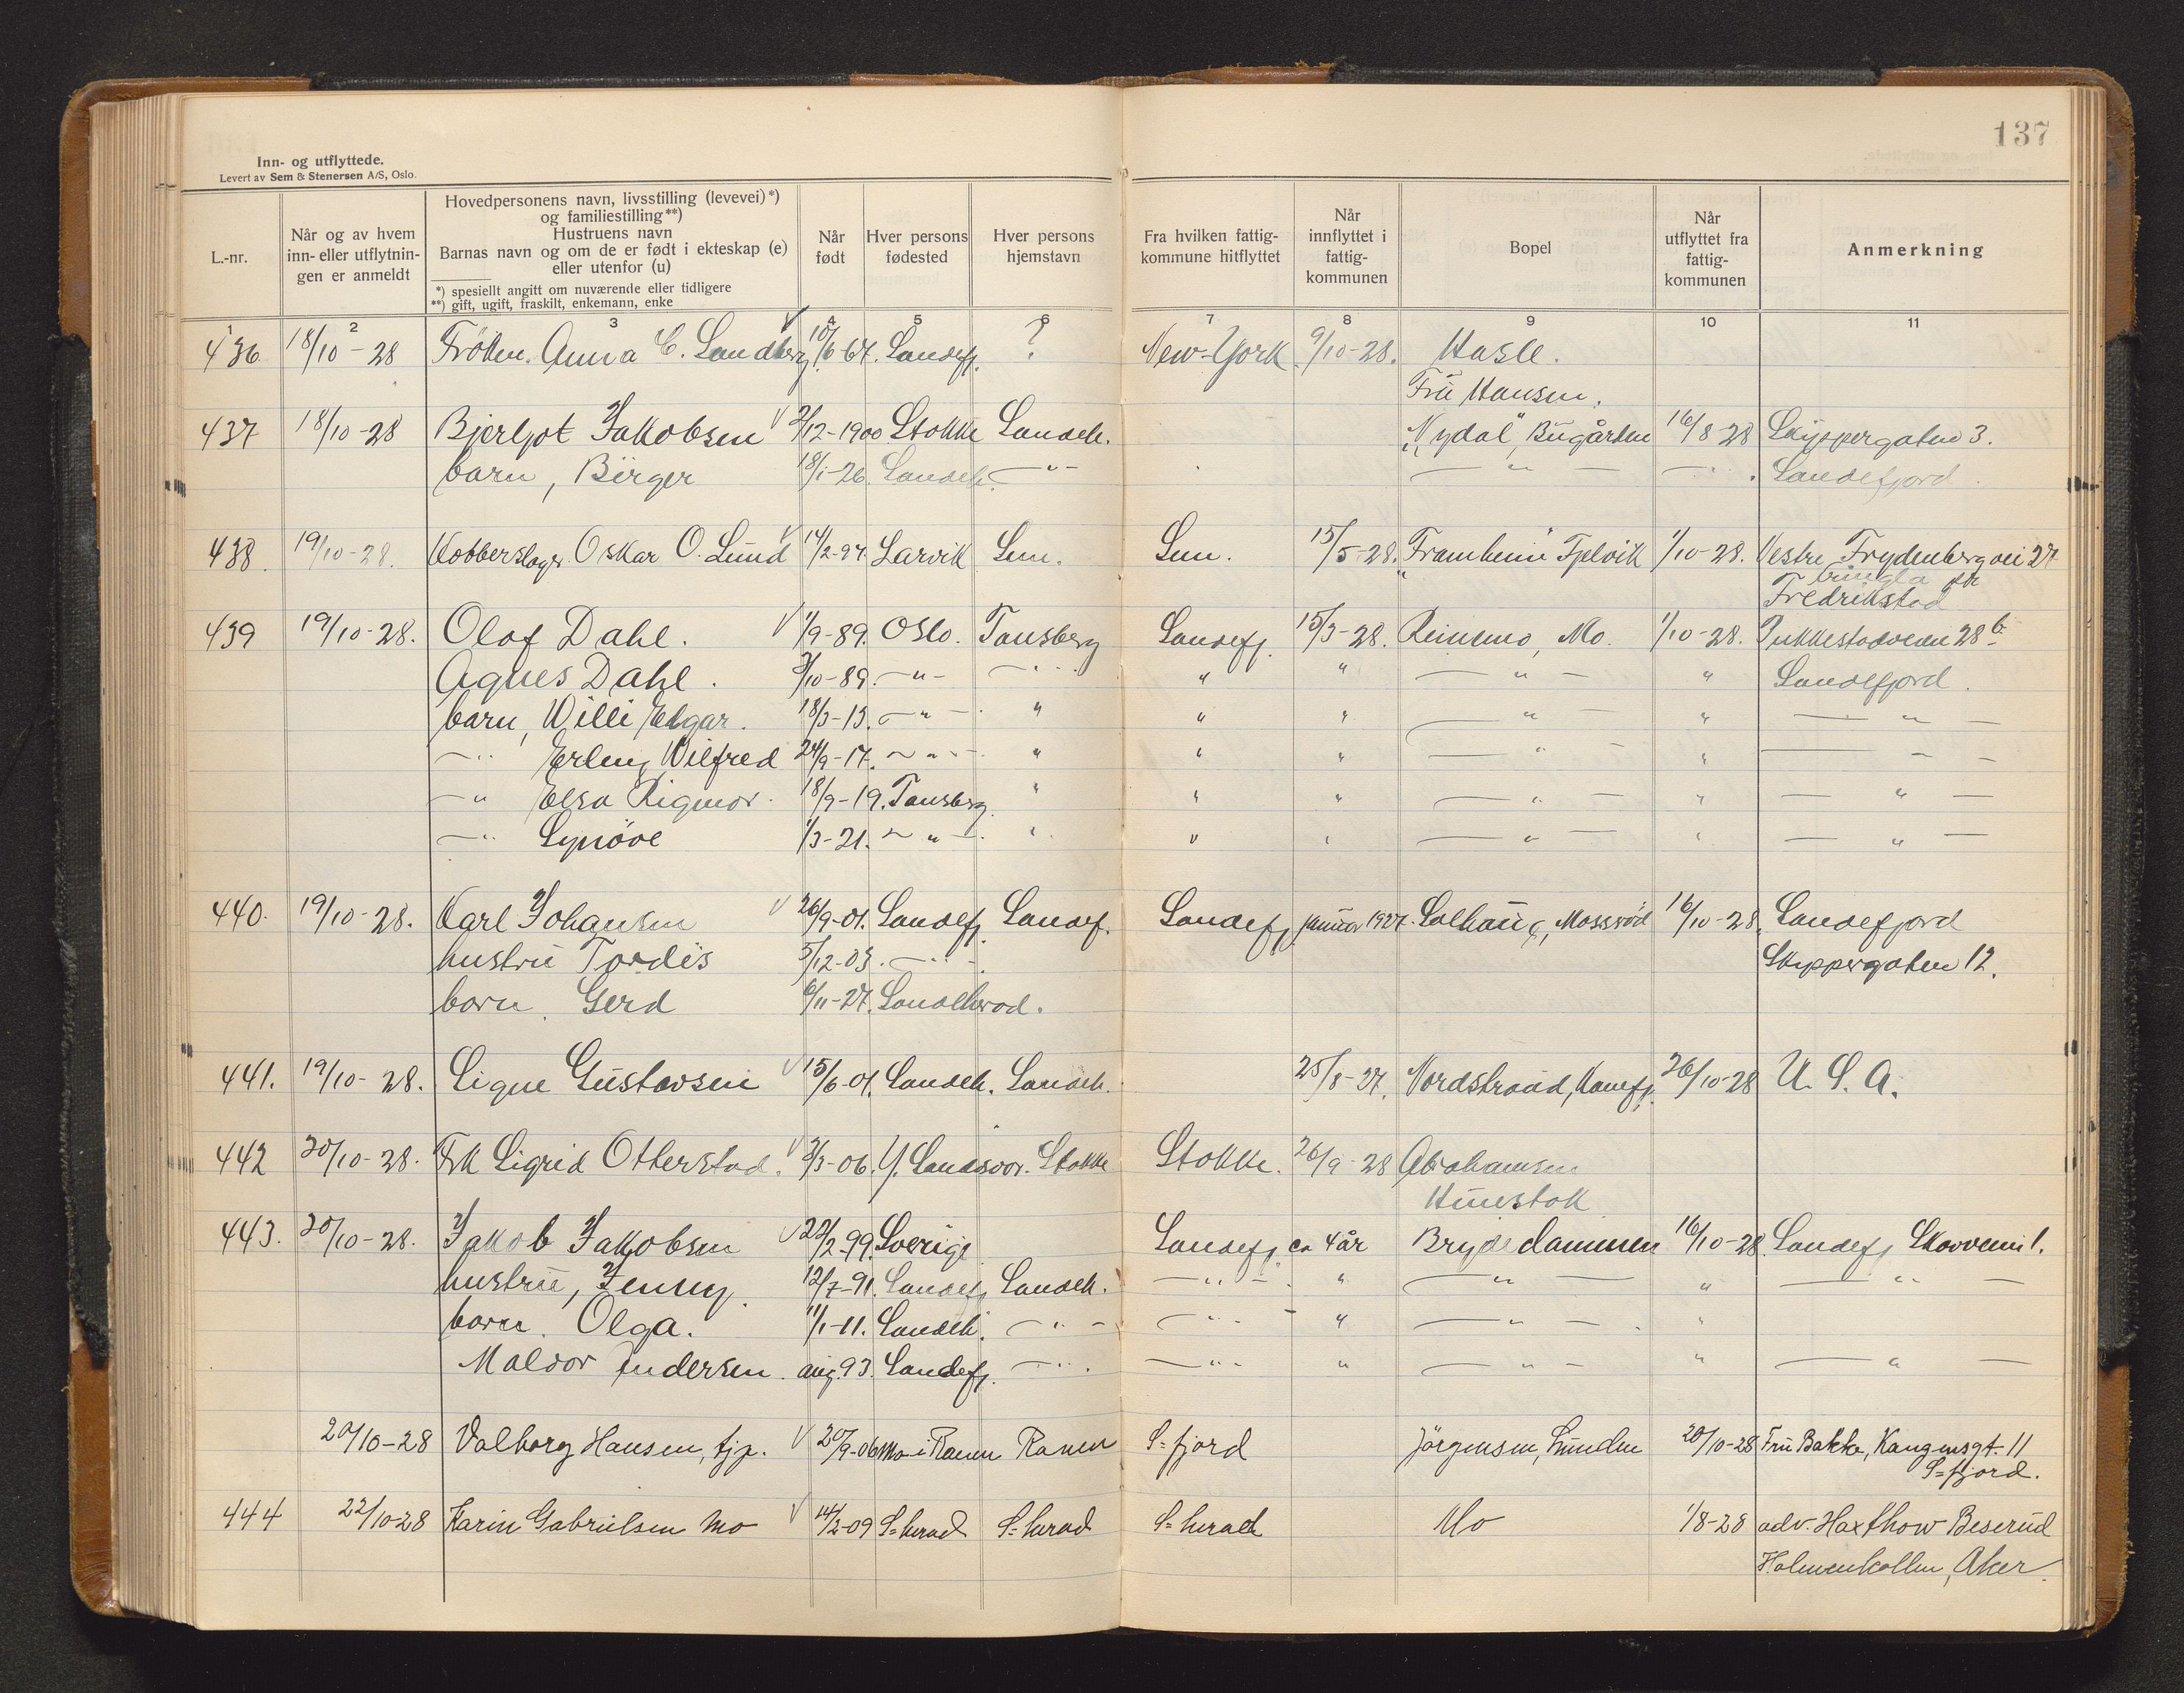 137
Inn- og utflyttede.
Levert av Sem & Stenersen A/S, Oslo.
L.-nr.
Når og av hvem
inn- eller utflytnin-
gen er anmeldt
Hovedpersonens navn, livsstilling (levevei)*)
og familiestilling**)
Hustruens navn
Barnas navn og om de er født i ekteskap (e)
eller utenfor (u)
*) spesiellt angitt om nuværende eller tidligere
**) gift, ugift, fraskilt, enkemann, enke
Når
født
Hver persons
fødested
Hver persons
hjemstavn
Fra hvilken fattig-
kommune hitflyttet
Når
innflyttet i
fattig-
kommunen
Bopel
Når
utflyttet fra
fattig-
kommunen
Anmerkning
1 2 3 4 5 6 7 8 9 10 11
436 18/10-28 Frøken Anna C. Sandberg 10/6-64. Sandefj. ? New-York 9/10-28. Hasle.
Frü Hansen.
437 18/10-28 Bjerljot Jakobsen 3/12-1900 Stokke Sandeh. "Nydal", Bugården 16/8 28 Skippergaten 3.
barn, Birger 18/1-26. Sandeh. -"- - " - Sandefjord.
438. 19/10-28. Kobberslager Oskar O. Lund 14/2-94. Larvik Sem. Sem. 15/5-28. "Framheim" Fjelvik 1/10-28. Vestre Frydenbergvei 27
Fredrikstad
439 19/10-28. Olaf Dahl. 1/9-89. Oslo. Tønsberg Sandefj. 15/3-28. Reinemo, Mo. 1/10-28. Pukkestadveien 28 b.
Agnes Dahl. 3/10-89. -"- -"- " " - " - " Sandefjord.
barn, Willi Edgar. 18/3-15. -"- " " " - " - " - " -
-"- Erling Wilfred 24/9-17. -"- " " " - " - " - " -
-"- Elsa Rigmor. 18/9-19. Tønsberg " " " - " - " - " -
-"- Synøve 1/3-21. -"- " " " - " - " - " -
440. 19/10-28. Karl Johansen 26/9-01. Sandefj. Sandef. Sandefj. januar 1927. Solhaug, Mosserød 16/10-28. Sandefjord
hustru Tordis 5/12-03. -"- Skippergaten 12.
barn. Gerd 6/11-27. Sandeherad.
441. 19/10-28. Signe Gustavsen 15/6-01. Sandeh. Sandeh. 25/8-27. Nordstrand, Kamfj. 26/10-28 U. S. A.
442 20/10-28. Frk Sigrid Otterstad. 3/3-06. Y. Sandsvær. Stokke Stokke. 26/9-28 Abrahamsen
Hunstok
443. 20/10-28. Jakob Jakobsen 22/2-99. Sverige Sandefj. ca 4 år Brydedammen 16/10-28. Sandefj Skovveien 1.
hustru, Jenny. 12/7-91. Sandefj Sandeh. -"- " - " - " - " -
barn. Olga. 11/1-11. Sandeh. -"- -"- " - " - "
Maldor Andersen. aug. 93. Sandefj. -"- -"- " - " - " - " -
20/10-28 Valborg Hansen, tjp. 20/9-06 Mo i Ranen Ranen S=fjord Jørgensen, Lunden 20/10-28 Fru Bakke, Kongensgt. 11
S=fjord.
444 22/10-28 Karin Gabrielsen Mo 14/2-09 S=herad S=herad S=herad Mo 1/8-28 adv. Haxthow Beserud
Holmenkollen, Aker.